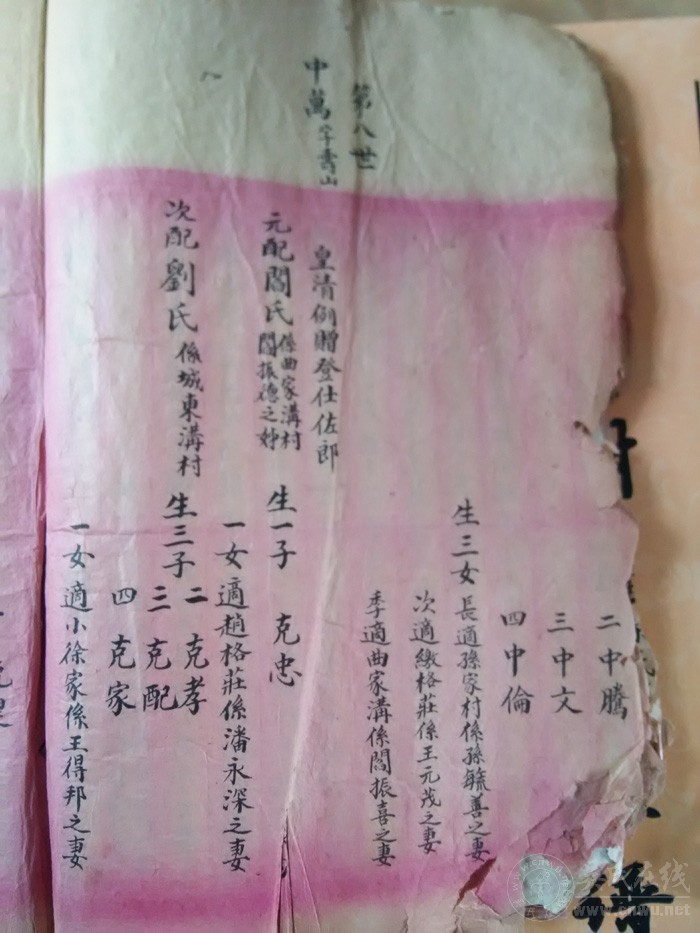 二中騰
三中文
四中倫
生三女 長適孫家村係孫毓善之妻
次適繳格莊係王元茂之妻
季適曲家溝係閻振喜之妻
第八世
中萬 字壽山
皇清例贈登仕佐郎
元配閻氏 係曲家溝村
閻振德之姊
生一子 克忠
一女適趙格莊係潘永深之妻
次配劉氏 係城東溝村
生三子 二克孝
三克配
四克家
一女適小徐家係王得邦之妻
www.cnwu.net